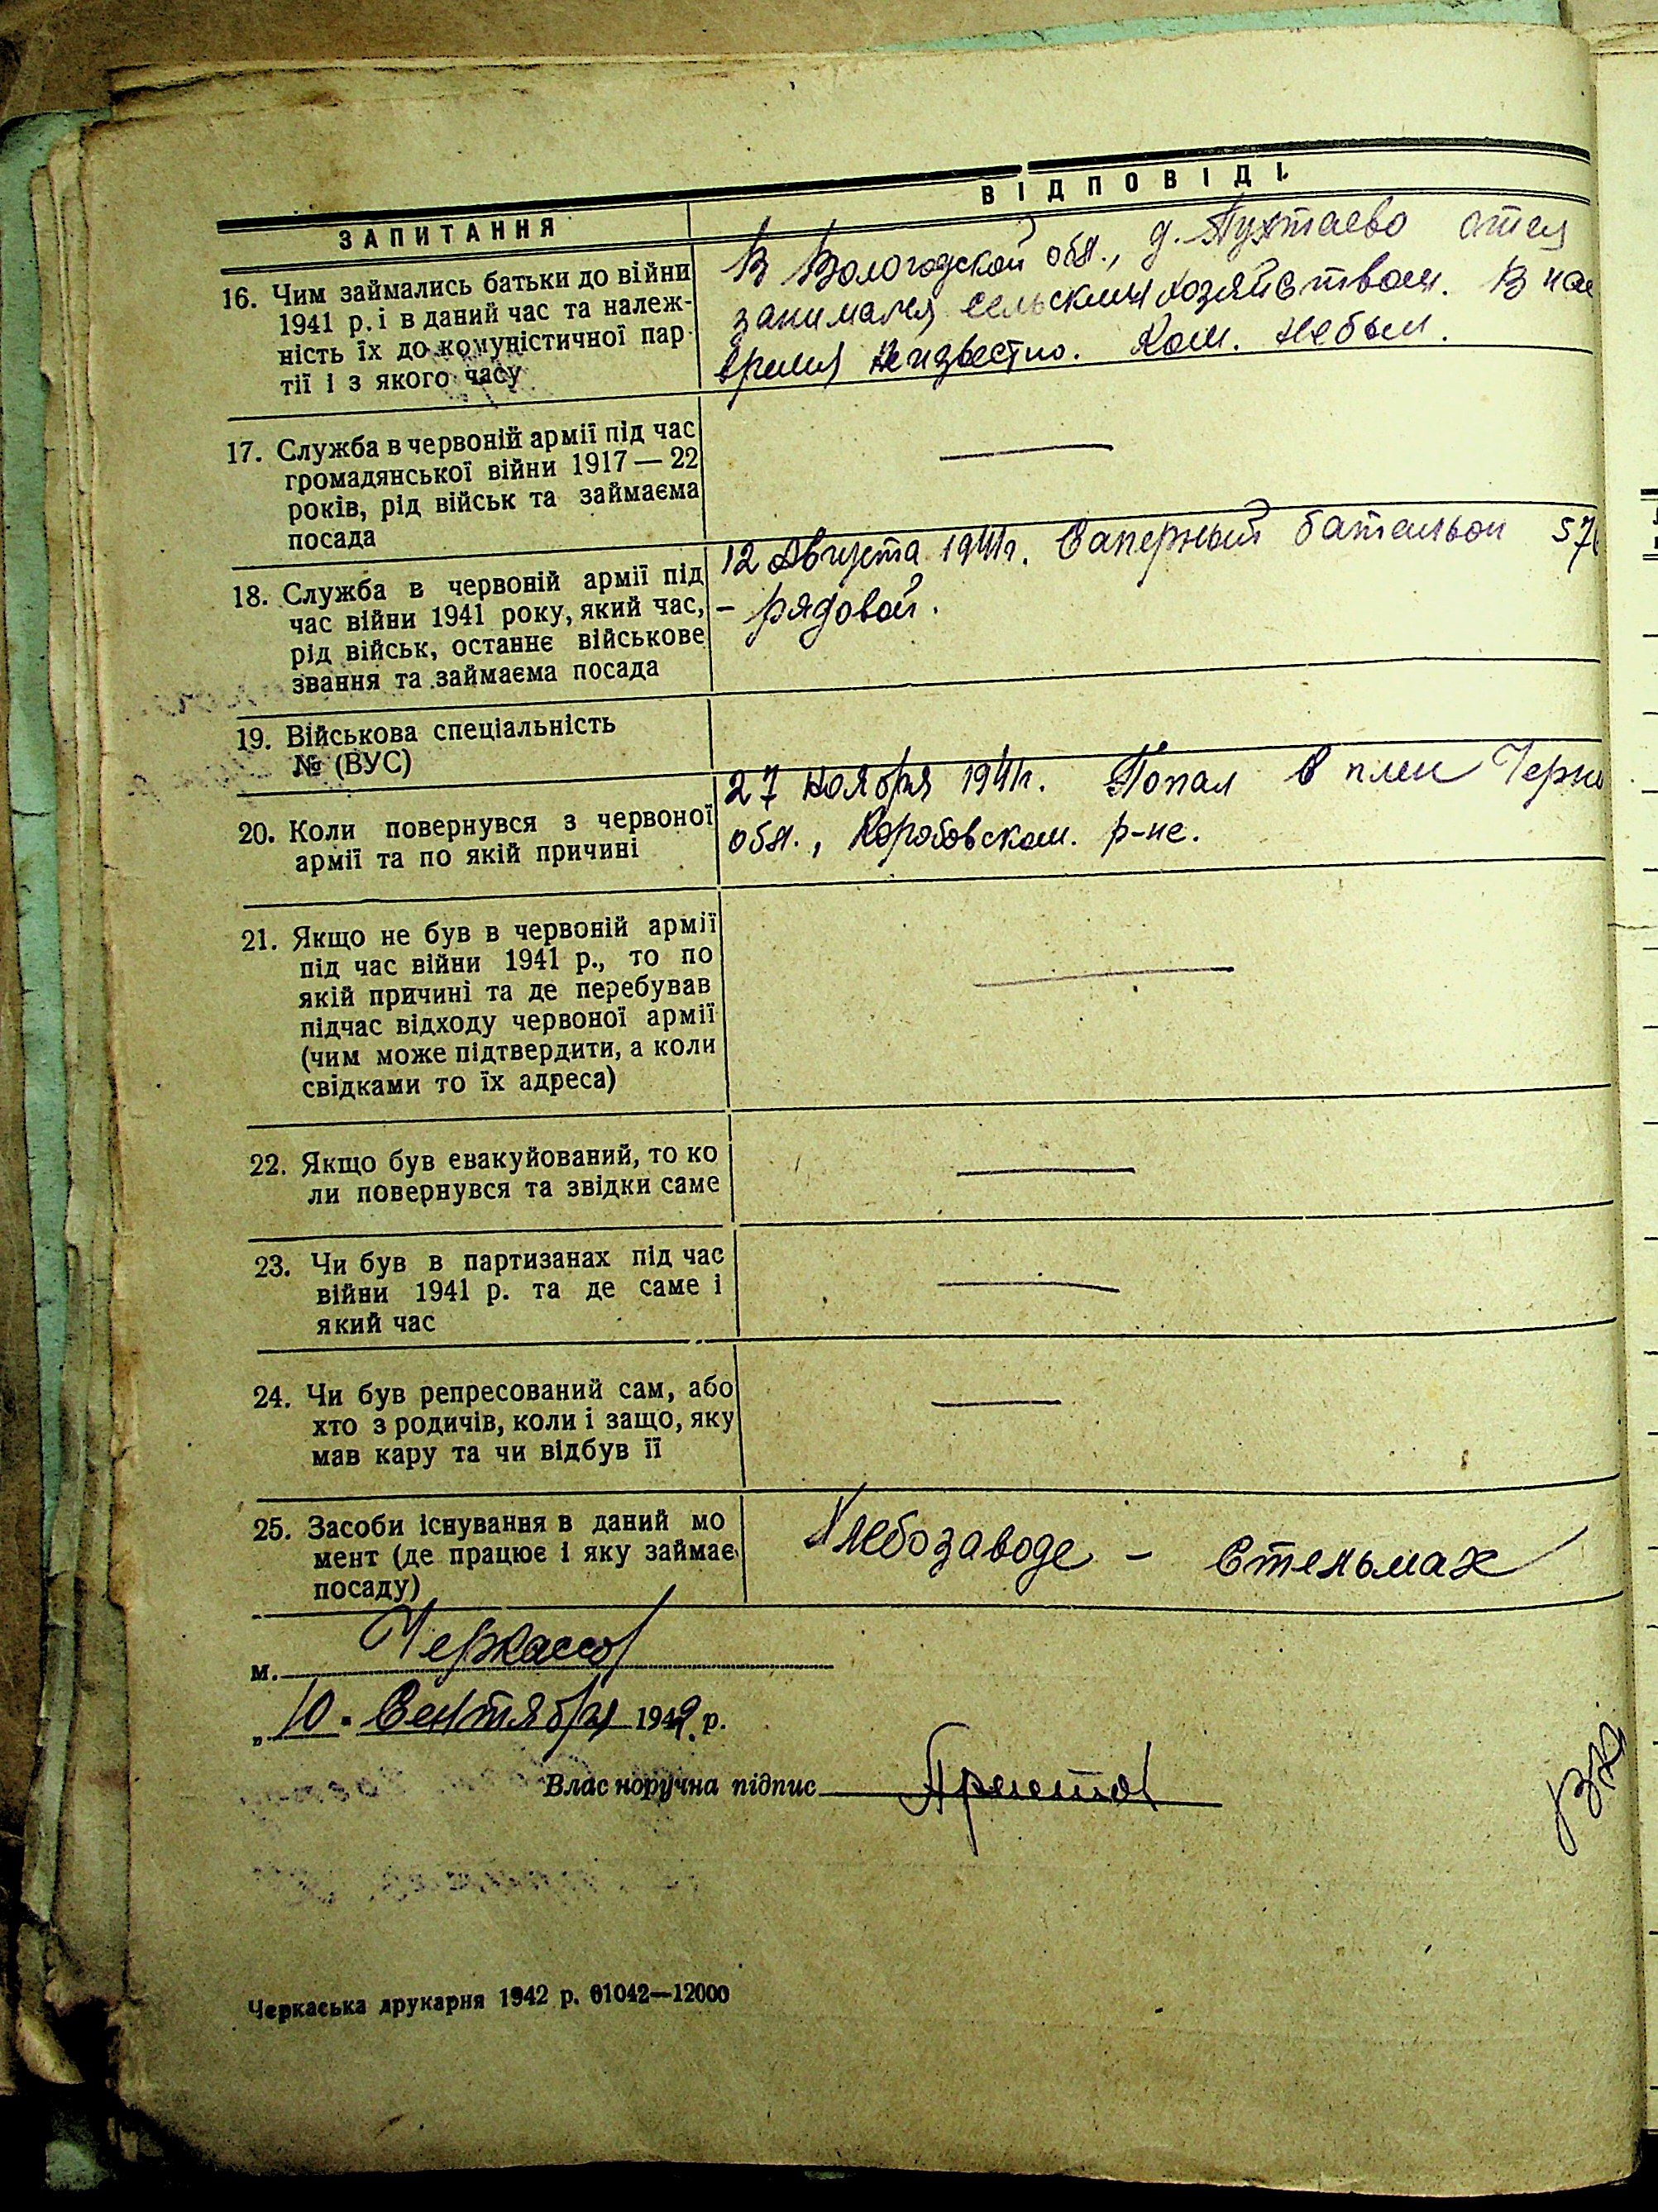 ЗАПИТАННЯ
ВІДПОВІДІ.
16. Чим займались батьки до війни
1941 р. і в даний час та належ-
ність їх до комуністичної пар-
тії і з якого часу
В Вологодской обл., д. Пухтаево отец
занимался сельским хозяйством. В нас
время неизвестно. Ком. небыл.
17. Служба в червоній армії під час
громадянської війни 1917 — 22
років, рід військ та займаєма
посада
18. Служба в червоній армії під
час війни 1941 року, який час,
рід військ, останнє військове
звання та займаєма посада
12 Августа 1941г. Саперный батальон 57
– рядовой.
19. Військова спеціальність
№ (ВУС)
20. Коли повернувся з червоної
армії та по якій причині
27 ноября 1941г. Попал в плен Черни
обл., Коробовском. р-не.
21. Якщо не був в червоній армії
під час війни 1941 р., то по
якій причині та де перебував
підчас відходу червоної армії
(чим може підтвердити, а коли
свідками то їх адреса)
22. Якщо був евакуйований, то ко
ли повернувся та звідки саме
23. Чи був в партизанах під час
війни 1941 р. та де саме і
який час
24. Чи був репресований сам, або
хто з родичів, коли і защо, яку
мав кару та чи відбув її
25. Засоби існування в даний мо
мент (де працює і яку займає
посаду)
Хлебозаводе – Стельмах
м. Черкассы
„10. Сентября 1942. р.
Власноручна підпис
Черкаська друкарня 1942 р. 01042—12000